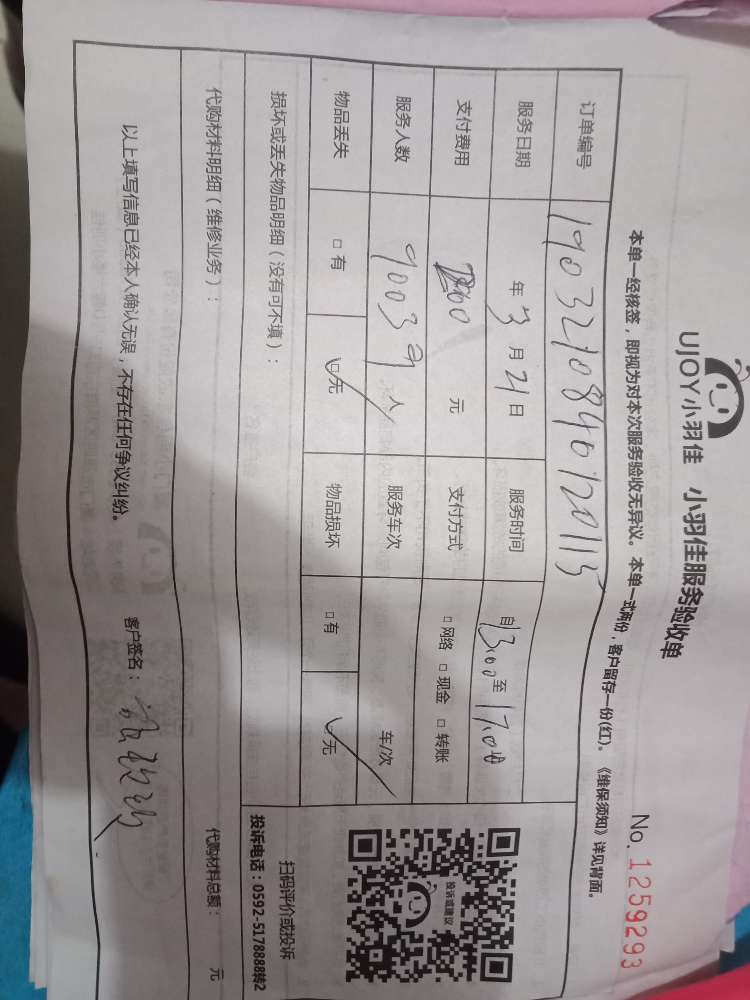 UJOY小羽佳 小羽佳服务验收单
No. 1259293
本单一经核签，即视为对本次服务验收无异议。本单一式两份，客户留存一份(红)。《维保须知》详见背面。
订单编号 1903210840120115
服务日期 年 3 月 21 日 服务时间 自 13:00 至 17:00
支付费用 元 支付方式 □ 网络 □ 现金 □ 转账
服务人数 人 服务车次 车/次
物品丢失 □ 有 ☑ 无 物品损坏 □ 有 ☑ 无
损坏或丢失物品明细（没有可不填）：
投诉或建议
扫码评价或投诉
投诉电话：0592-5178888转2
代购材料明细（维修业务）： 代购材料总额： 元
以上填写信息已经本人确认无误，不存在任何争议纠纷。 客户签名：